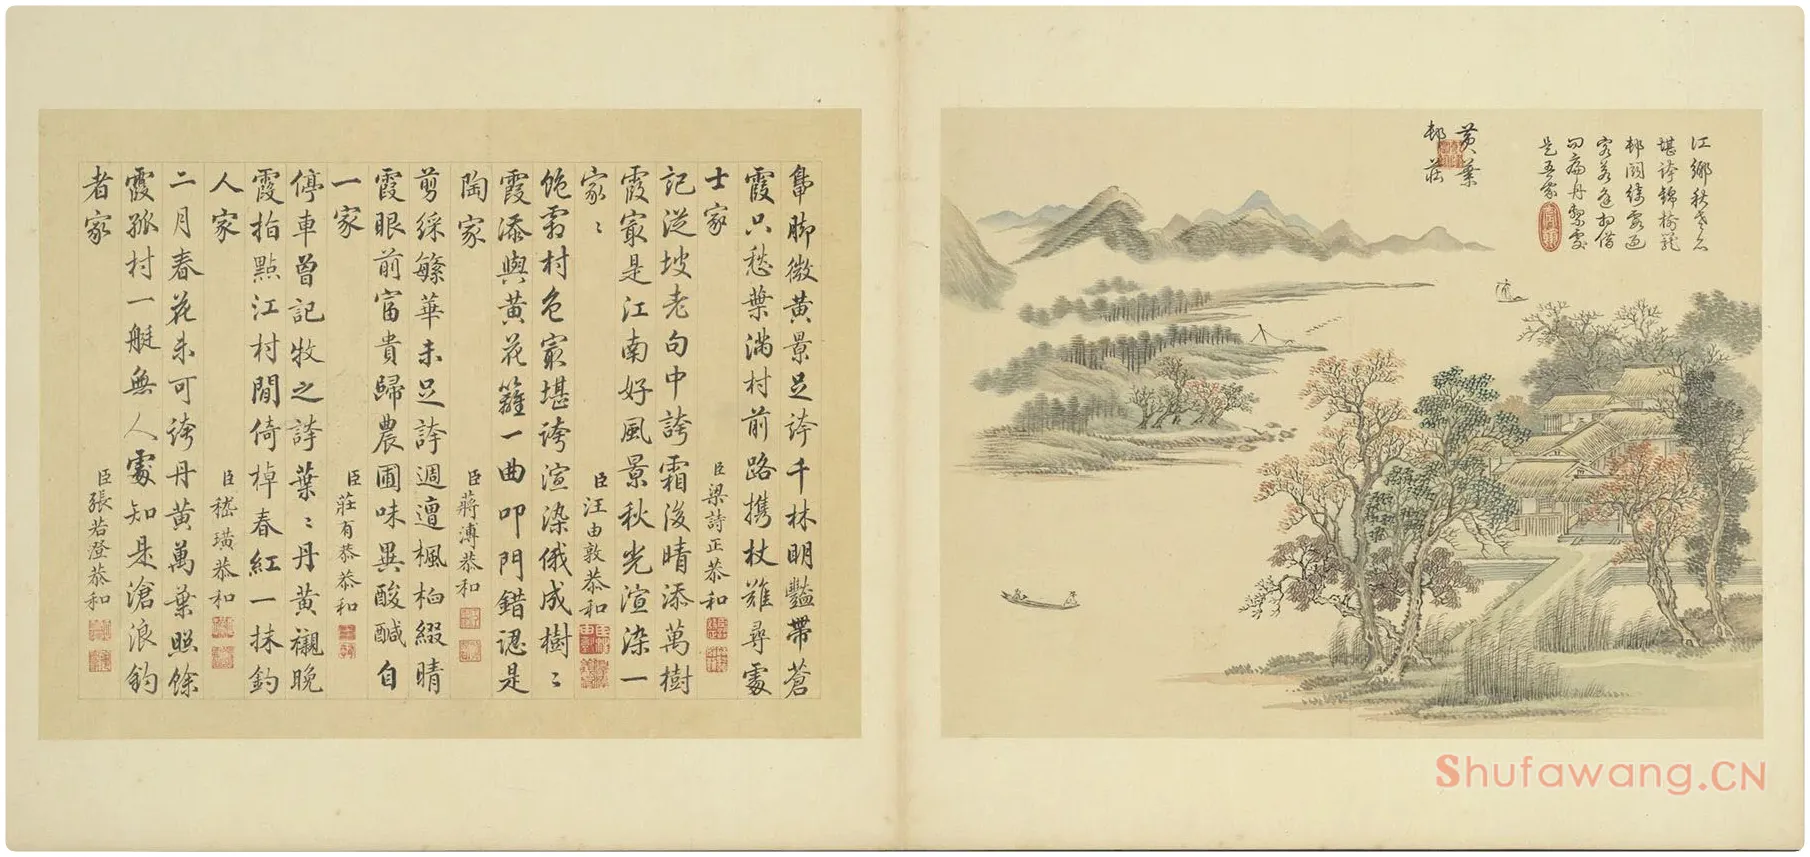 江鄉秋老
堪誇錦樹籠
邨閟綺霞過
客若逢相借
問丹黎處
是吾家
黃葉
邨莊
鳧腳微黃景足誇千林明豔帶蒼
霞只愁葉滿村前路攜杖難尋處
士家
臣梁詩正恭和
記從坡老句中誇霜後晴添萬樹
霞最是江南好風景秋光渲染一
家〻
臣汪由敦恭和
飽霜村色最堪誇渲染俄成樹〻
霞添與黃花籬一曲叩門錯認是
陶家
臣蔣溥恭和
剪綵繁華未足誇週遭楓桕綴晴
霞眼前富貴歸農圃味異酸鹹自
一家
臣莊有恭恭和
停車曾記牧之誇葉〻丹黃襯晚
霞指點江村閒倚棹春紅一抹釣
人家
臣嵇璜恭和
二月春花未可誇丹黃萬葉照餘
霞孤村一艇無人處知是滄浪釣
者家
臣張若澄恭和
Shufawang.CN